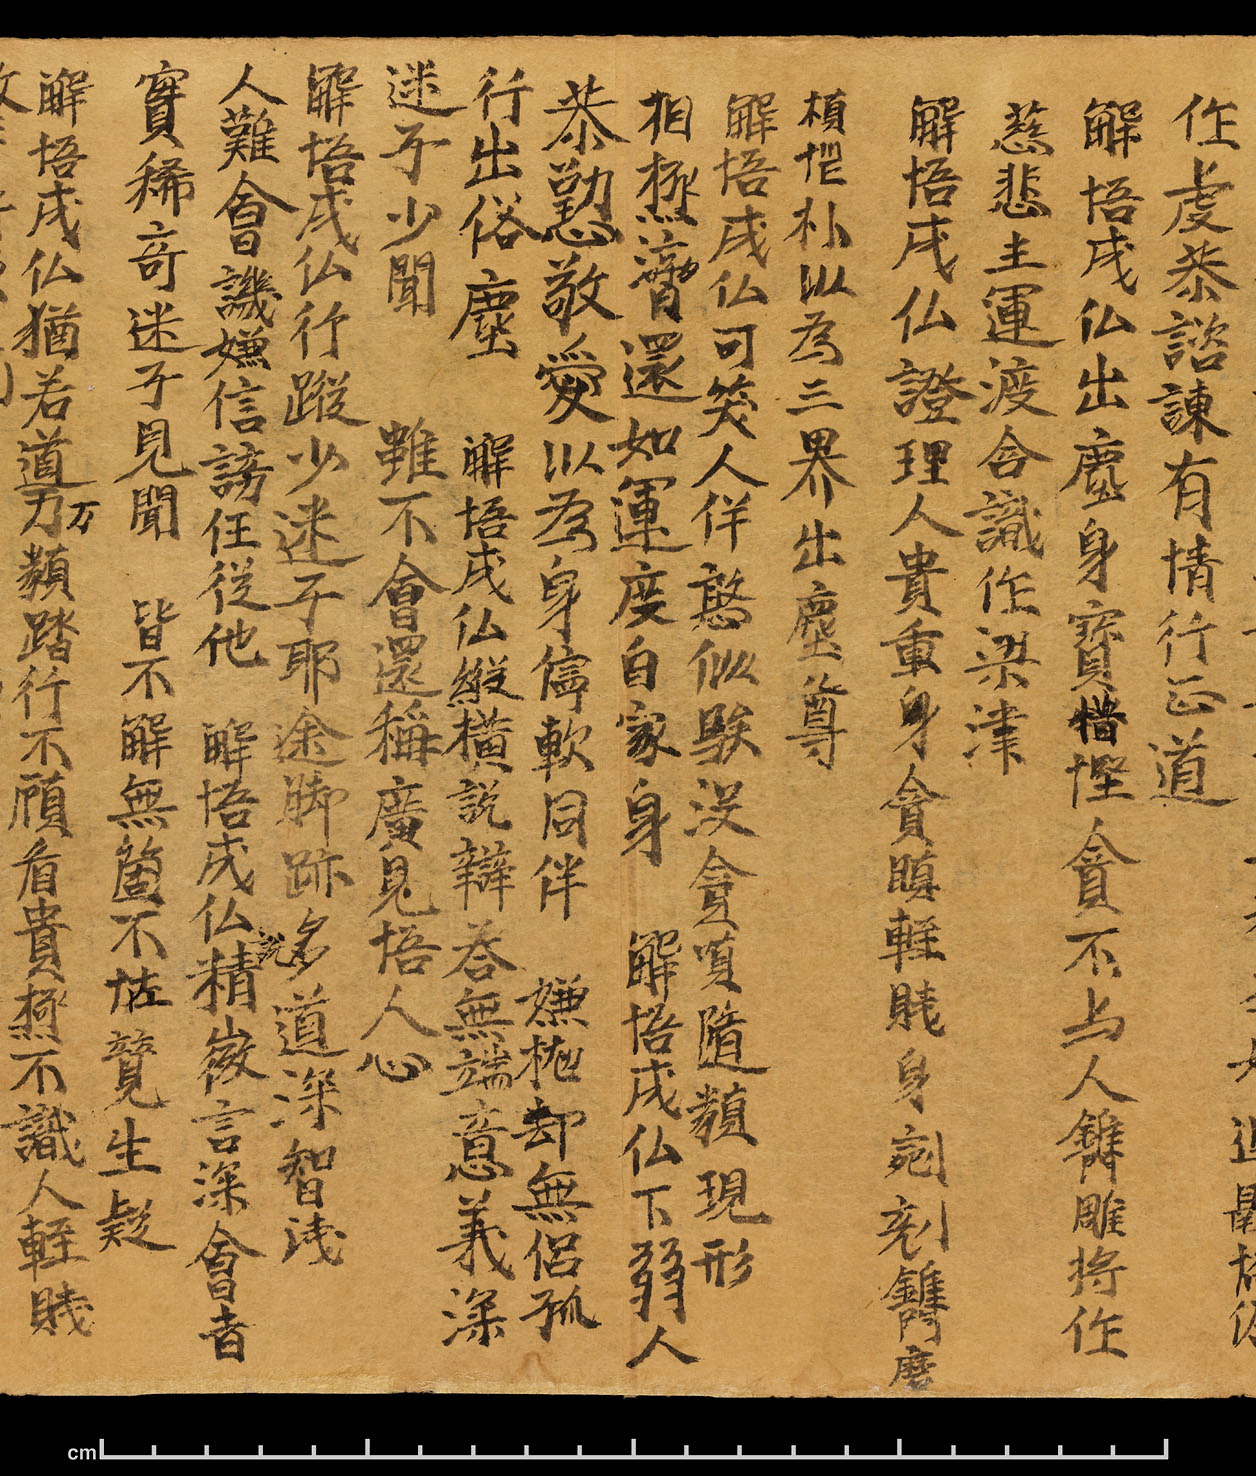 作虔恭諮諫有情行正道
解悟成仏出塵身寳惜慳貪不与人鐫雕将作
慈悲主運渡含識作梁津
解悟成仏證理人貴重身貪瞋輕賎身剜刻鐫磨
朴以為三界出塵尊
解悟成仏可笑人佯憨似騃没貪嗔隨類現形
相極 還如運度自家身 解悟成仏下弱人
恭懃敬愛以為身儜軟同伴 嫌抛却無侣孤
行出俗塵 解悟成仏縱横説辯荅無端意義深
迷子少聞 雖不會還稱廣見悟人心
解悟成仏行蹤少迷子耶途脚跡多道深智浅
人難會譏嫌信謗任從他 解悟成仏精微言説深會者
實稀奇迷子見聞 皆不解無箇不怯覽生疑
解悟成仏猶若道刀万類踏行不顧看貴極不識人輕賎